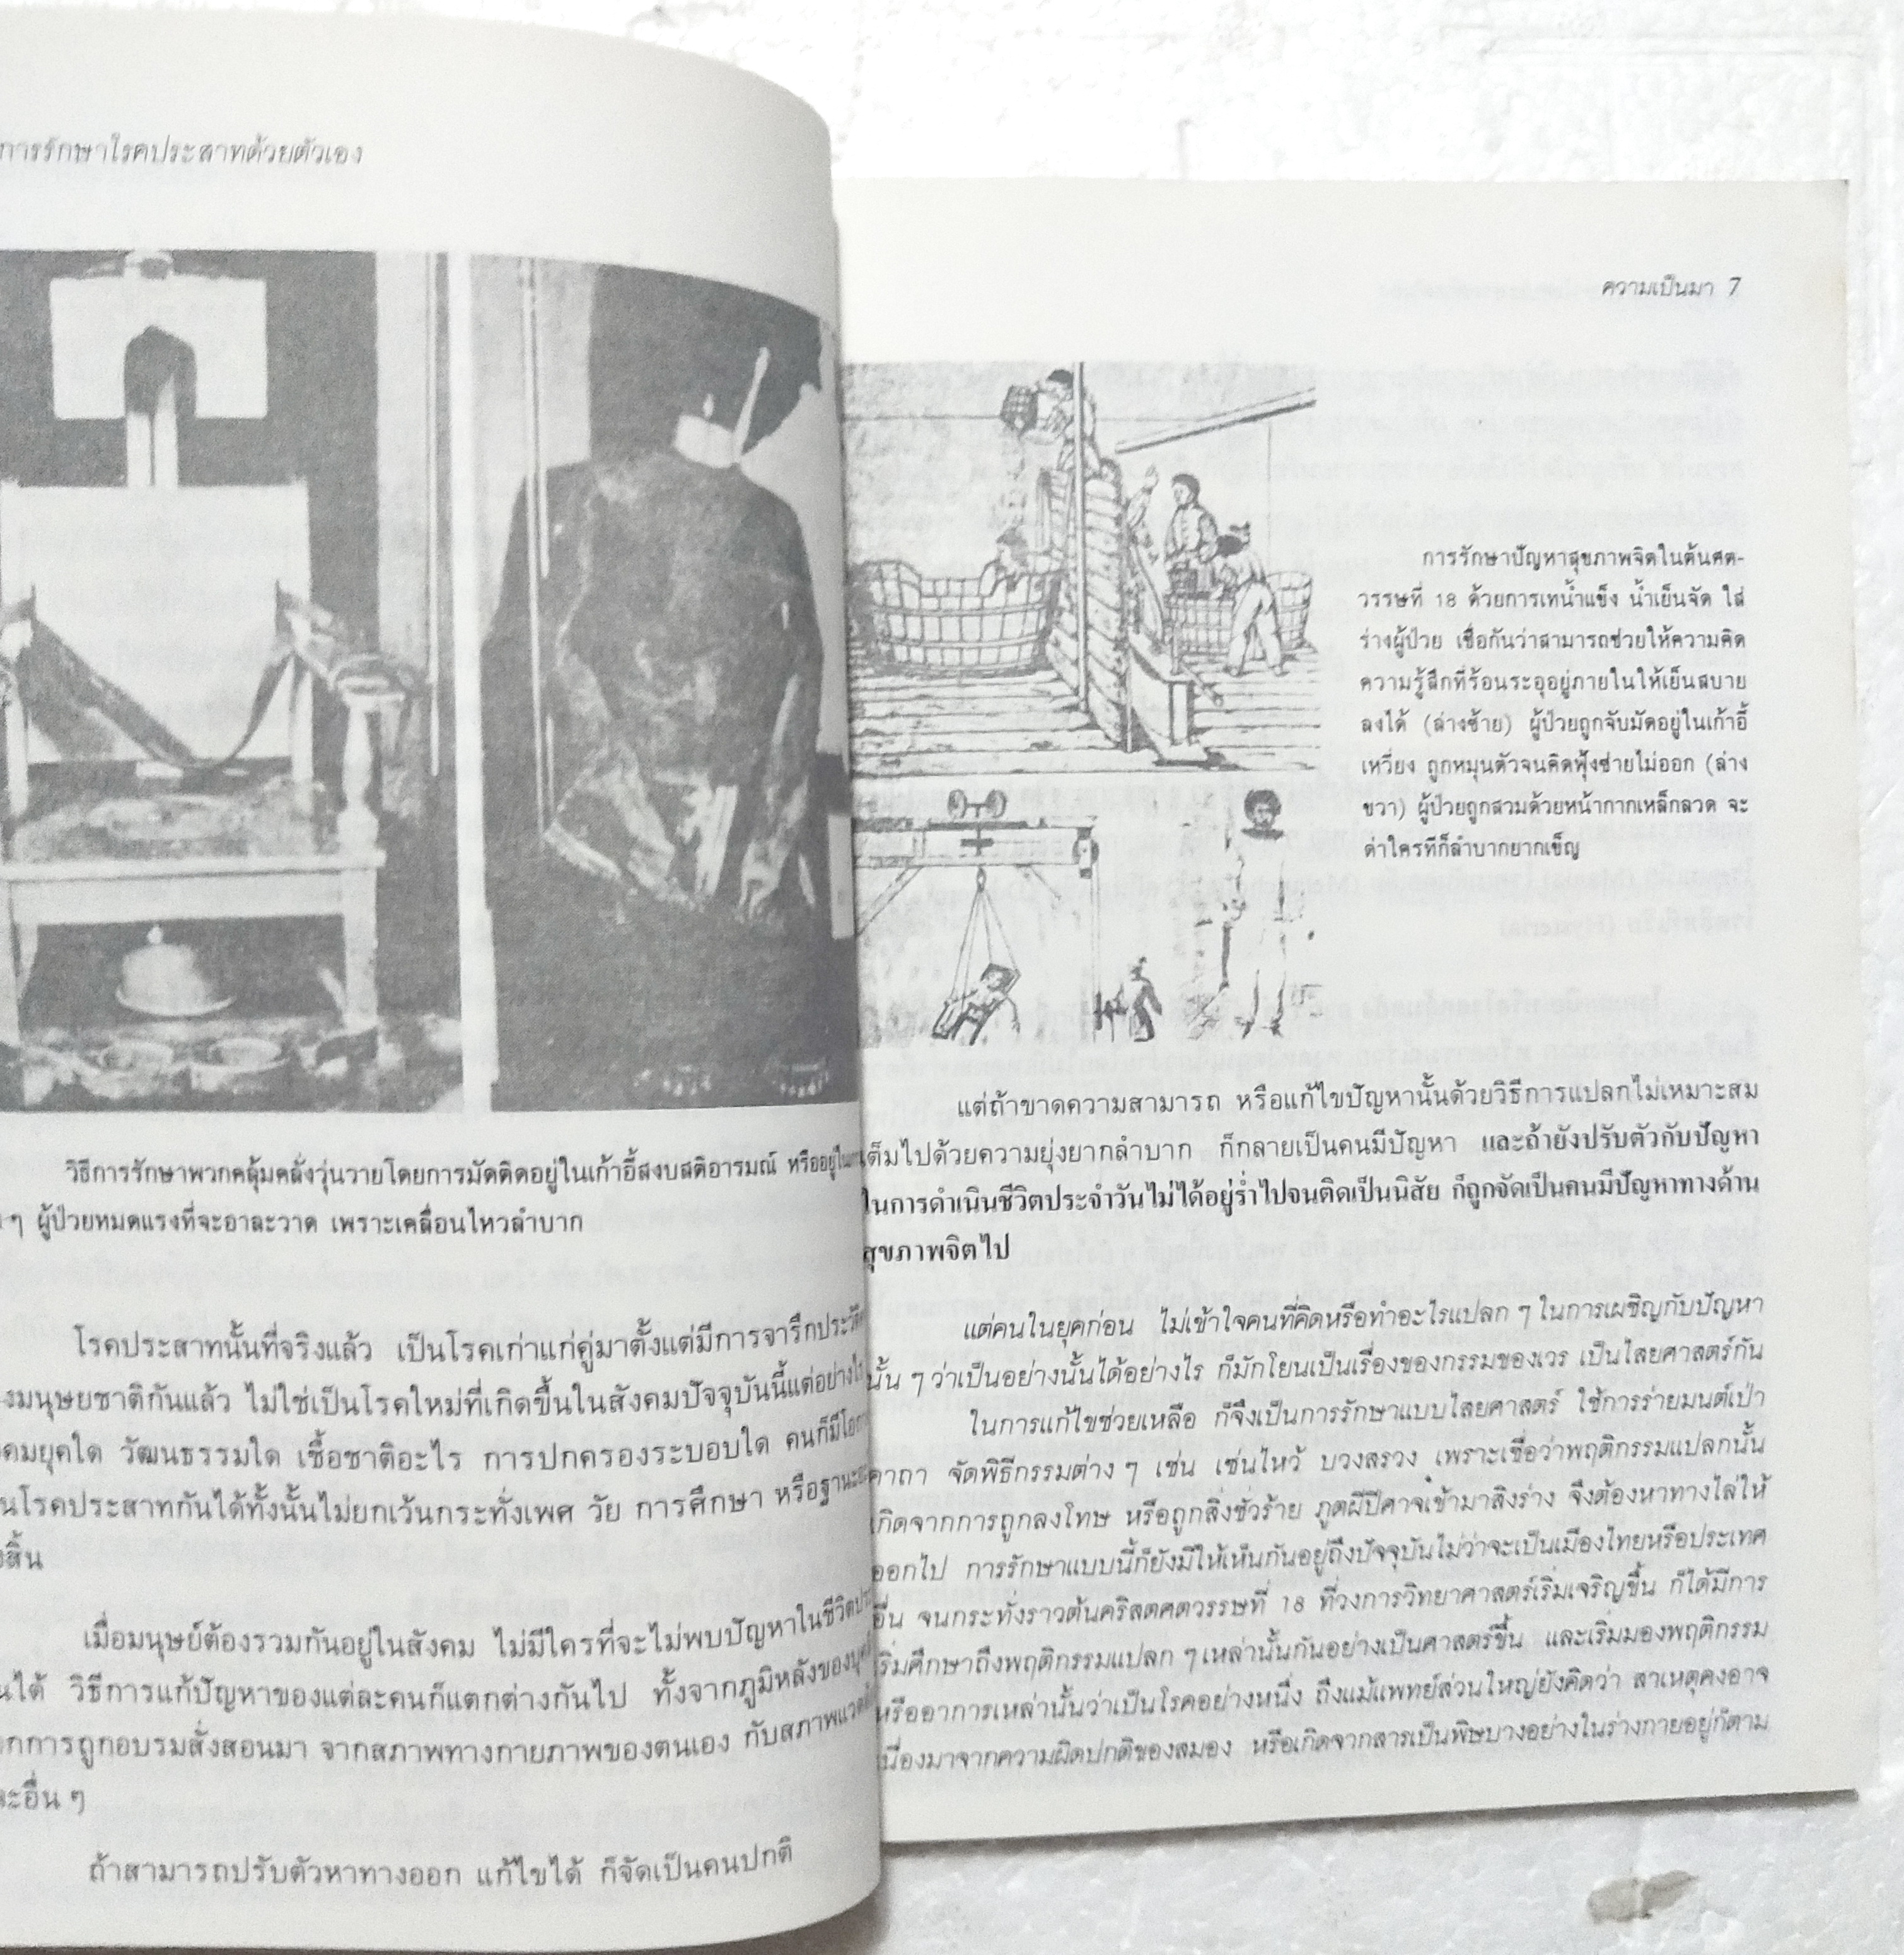 การรักษาโรคประสาทด้วยตัวเอง
วิธีการรักษาพวกคลุ้มคลั่งวุ่นวายโดยการมัดติดอยู่ในเก้าอี้สงบสติอารมณ์ หรืออยู่ใน
ๆ ผู้ป่วยหมดแรงที่จะอาละวาด เพราะเคลื่อนไหวลำบาก
โรคประสาทนั้นที่จริงแล้ว เป็นโรคเก่าแก่คู่มาตั้งแต่มีการจารึกประวัติ
งมนุษยชาติกันแล้ว ไม่ใช่เป็นโรคใหม่ที่เกิดขึ้นในสังคมปัจจุบันนี้แต่อย่างใด
คมยุคใด วัฒนธรรมใด เชื้อชาติอะไร การปกครองระบอบใด คนก็มี
นโรคประสาทกันได้ทั้งนั้นไม่ยกเว้นกระทั่งเพศ วัย การศึกษา หรือฐานะ
สิ้น
เมื่อมนุษย์ต้องรวมกันอยู่ในสังคม ไม่มีใครที่จะไม่พบปัญหาในชีวิต
นได้ วิธีการแก้ปัญหาของแต่ละคนก็แตกต่างกันไป ทั้งจากภูมิหลังของ
กการถูกอบรมสั่งสอนมา จากสภาพทางกายภาพของตนเอง กับสภาพ
ะอื่น ๆ
ถ้าสามารถปรับตัวหาทางออก แก้ไขได้ ก็จัดเป็นคนปกติ
ความเป็นมา 7
การรักษาปัญหาสุขภาพจิตในต้นศต-
วรรษที่ 18 ด้วยการเทน้ำแข็ง น้ำเย็นจัด ใส่
ร่างผู้ป่วย เชื่อกันว่าสามารถช่วยให้ความคิด
ความรู้สึกที่ร้อนระอุอยู่ภายในให้เย็นสบาย
ลงได้ (ล่างซ้าย) ผู้ป่วยถูกจับมัดอยู่ในเก้าอี้
เหวี่ยง ถูกหมุนตัวจนคิดฟุ้งซ่ายไม่ออก (ล่าง
ขวา) ผู้ป่วยถูกสวมด้วยหน้ากากเหล็กลวด จะ
ด่าใครทีก็ลำบากยากเข็ญ
แต่ถ้าขาดความสามารถ หรือแก้ไขปัญหานั้นด้วยวิธีการแปลกไม่เหมาะสม
เต็มไปด้วยความยุ่งยากลำบาก ก็กลายเป็นคนมีปัญหา และถ้ายังปรับตัวกับปัญหา
ในการดำเนินชีวิตประจำวันไม่ได้อยู่ร่ำไปจนติดเป็นนิสัย ก็ถูกจัดเป็นคนมีปัญหาทางด้าน
สุขภาพจิตไป
แต่คนในยุคก่อน ไม่เข้าใจคนที่คิดหรือทำอะไรแปลก ๆ ในการเผชิญกับปัญหา
นั้น ๆ ว่าเป็นอย่างนั้นได้อย่างไร ก็มักโยนเป็นเรื่องของกรรมของเวร เป็นไสยศาสตร์กัน
ในการแก้ไขช่วยเหลือ ก็จึงเป็นการรักษาแบบไสยศาสตร์ ใช้การร่ายมนต์เป่า
คาถา จัดพิธีกรรมต่าง ๆ เช่น เซ่นไหว้ บวงสรวง เพราะเชื่อว่าพฤติกรรมแปลกนั้น
เกิดจากการถูกลงโทษ หรือถูกสิ่งชั่วร้าย ภูตผีปีศาจเข้ามาสิงร่าง จึงต้องหาทางไล่ให้
ออกไป การรักษาแบบนี้ก็ยังมีให้เห็นกันอยู่ถึงปัจจุบันไม่ว่าจะเป็นเมืองไทยหรือประเทศ
อื่น จนกระทั่งราวต้นคริสตศตวรรษที่ 18 ที่วงการวิทยาศาสตร์เริ่มเจริญขึ้น ก็ได้มีการ
เริ่มศึกษาถึงพฤติกรรมแปลก ๆ เหล่านั้นกันอย่างเป็นศาสตร์ขึ้น และเริ่มมองพฤติกรรม
หรืออาการเหล่านั้นว่าเป็นโรคอย่างหนึ่ง ถึงแม้แพทย์ส่วนใหญ่ยังคิดว่า สาเหตุคงอาจ
เนื่องมาจากความผิดปกติของสมอง หรือเกิดจากสารเป็นพิษบางอย่างในร่างกายอยู่ก็ตาม